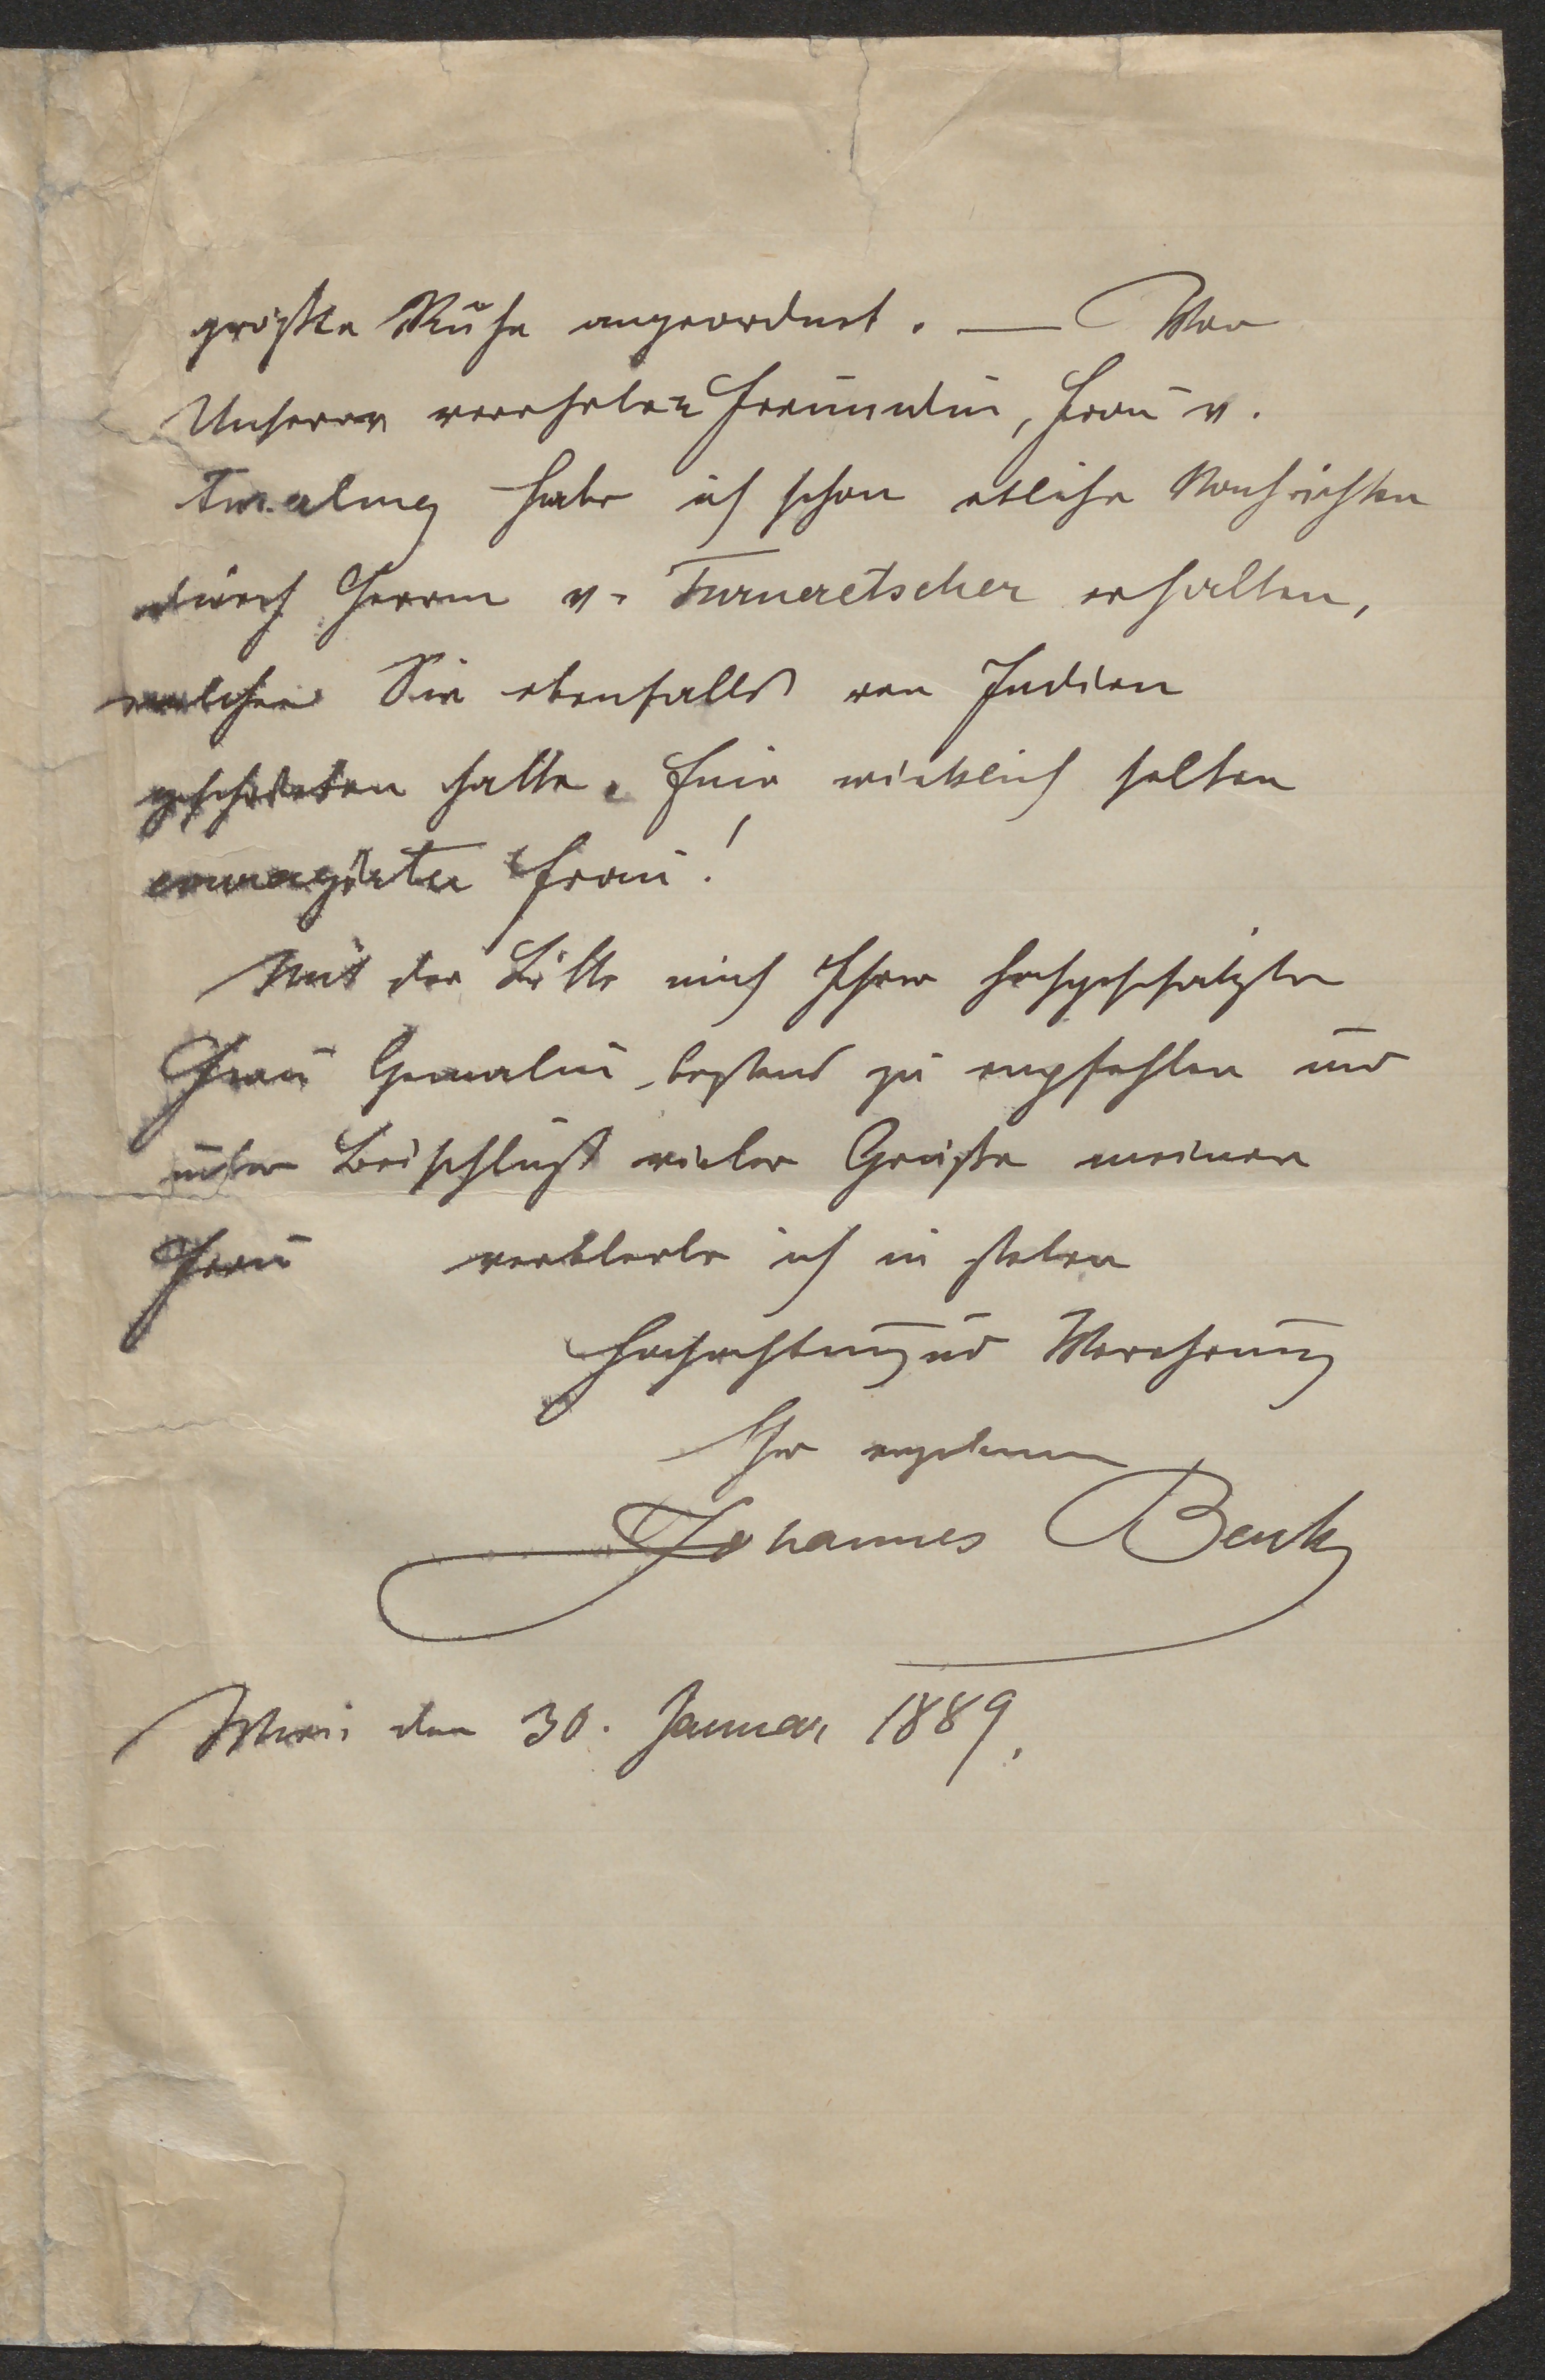 größte Ruhe angeordnet. — Von
Unserer verehrten Freundin, Frau v.
habe ich schon etliche Nachrichten
durch Herrn v. Turneretscher erhalten,
welcher Sie ebenfalls von Indien
geschrieben hatte. Eine wirklich selten
couragirte Frau!
Mit der Bitte mich Ihrer hochgeschätzten
Frau Gemalin bestens zu empfehlen und
unter Beischluß vieler Grüße meiner
Frau verbleibe ich in steter
Hochachtung und Verehrung
Ihr ergebener
Johannes Benk
Wien den 30. Januar 1889.